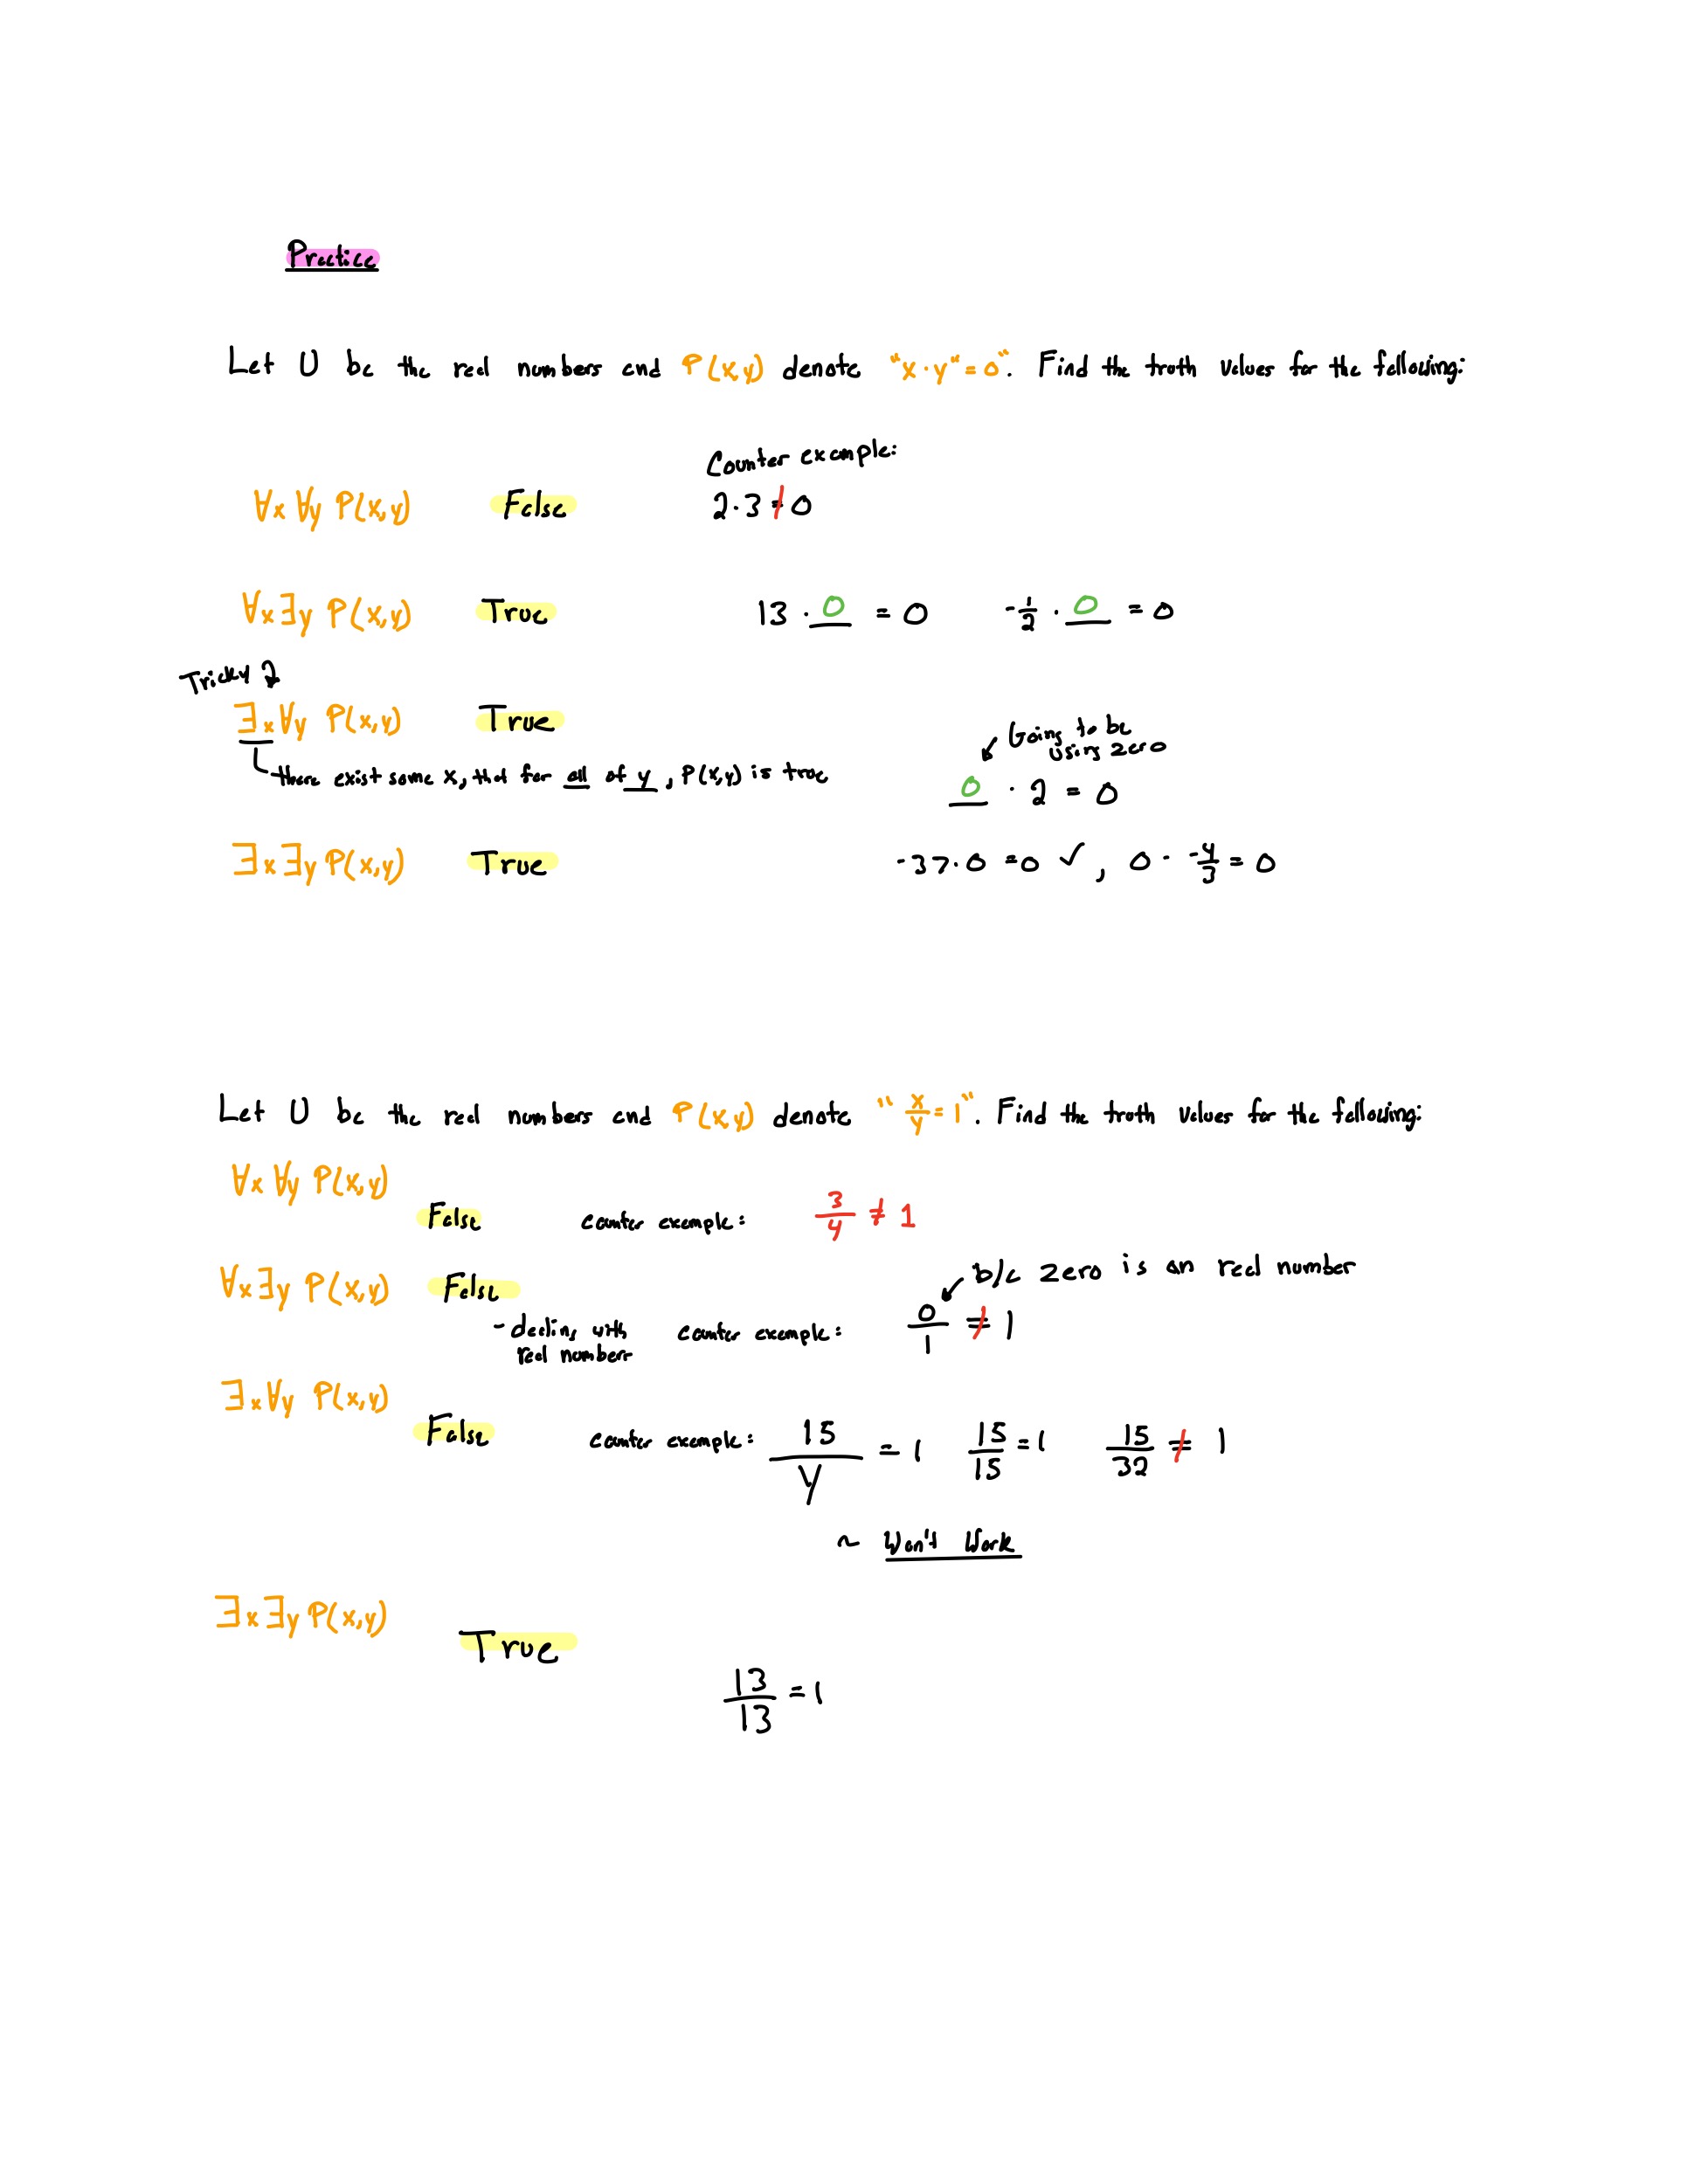 Practice
Let U be the real numbers and P(x,y) denote "x·y"=0". Find the truth values for the following:
Counter example:
∀x ∀y P(x,y) False 2·3 ≠ 0
∀x ∃y P(x,y) True 13 · 0 = 0 -1/2 · 0 = 0
Tricky
∃x ∀y P(x,y) True
Going to be
using zero
there exist some x, that for all of y, P(x,y) is true
0 · 2 = 0
∃x ∃y P(x,y) True -37·0 = 0 ✓, 0 · -4/3 = 0
Let U be the real numbers and P(x,y) denote "x/y = 1". Find the truth values for the following:
∀x ∀y P(x,y)
False counter example: 3/4 ≠ 1
∀x ∃y P(x,y) False b/c zero is an real number
- dealing with counter example: 0/1 ≠ 1
real numbers
∃x ∀y P(x,y)
False counter example: 15/y = 1 15/15 = 1 15/32 ≠ 1
~ Won't Work
∃x ∃y P(x,y)
True
13/13 = 1